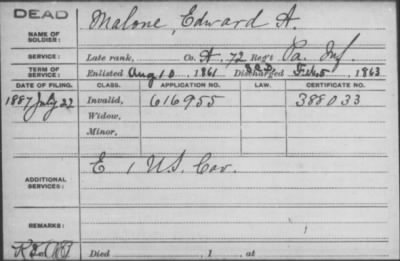 DEAD
NAME OF SOLDIER: Malone, Edward A.
SERVICE: Late rank, Co. A, 72 Reg't Pa. Inf.
TERM OF SERVICE: Enlisted Aug 10, 1861 Discharged S.C.D. Feb 5, 1863
DATE OF FILING. CLASS. APPLICATION NO. LAW. CERTIFICATE NO.
1887 July 22 Invalid, 616955 385033
Widow,
Minor,
ADDITIONAL SERVICES: E 1 U.S. Cav.
REMARKS:
Died , 1 , at